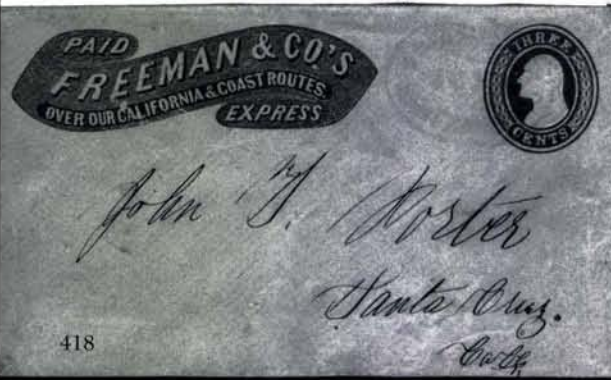 PAID
FREEMAN & CO'S
OVER OUR CALIFORNIA & COAST ROUTES
EXPRESS
THREE
CENTS
John T. Porter
Santa Cruz.
Cala
418